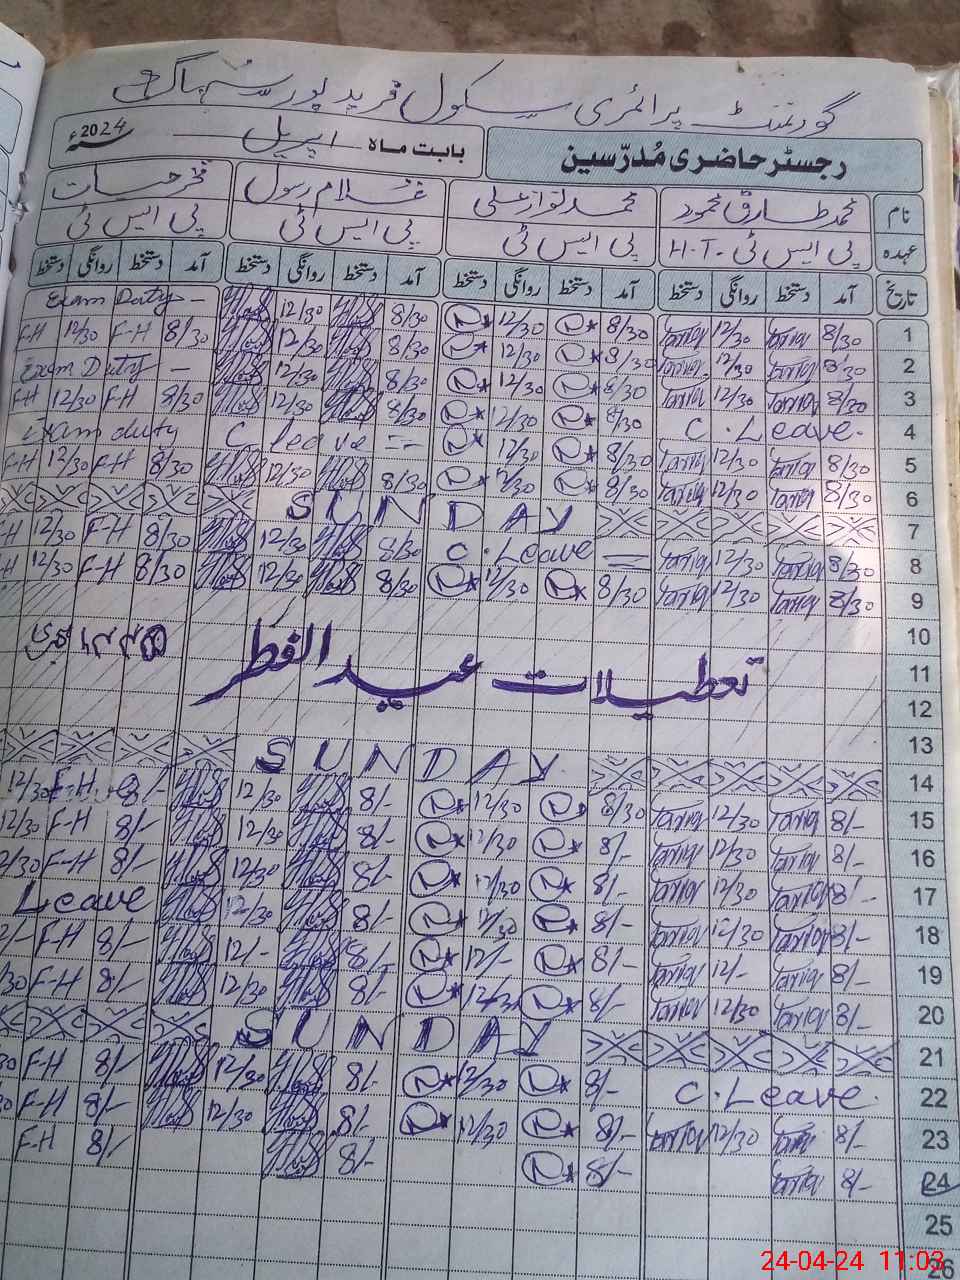 گورنمنٹ پرائمری سکول فرید پور سہاگ
رجسٹر حاضری مُدرّسین بابت ماہ اپریل سنہ 2024ء
نام محمد طارق محمود محمد نواز علی غلام رسول فرحیات
عہدہ پی ایس ٹی H.T. پی ایس ٹی پی ایس ٹی پی ایس ٹی
تاریخ آمد دستخط روانگی دستخط آمد دستخط روانگی دستخط آمد دستخط روانگی دستخط آمد دستخط روانگی دستخط
1 8/30 Tariq 12/30 Tariq 8/30 12/30 8/30 12/30 Exam Duty -
2 8/30 Tariq 12/30 Tariq 8/30 12/30 8/30 12/30 8/30 F-H 12/30 F-H
3 8/30 Tariq 12/30 Tariq 8/30 12/30 8/30 12/30 Exam Duty -
4 C. Leave. 8/30 12/30 8/30 12/30 8/30 F-H 12/30 F-H
5 8/30 Tariq 12/30 Tariq 8/30 12/30 C Leave == Exam duty
6 8/30 Tariq 12/30 Tariq 8/30 12/30 8/30 12/30 8/30 F-H 12/30 F-H
7 SUNDAY
8 8/30 Tariq 12/30 Tariq C. Leave = 8/30 12/30 8/30 F-H 12/30 F-H
9 8/30 Tariq 12/30 Tariq 8/30 12/30 8/30 12/30 8/30 F-H 12/30 H
10
11 تعطیلات عید الفطر ۱۴۴۵ ہجری
12
13
14 SUNDAY
15 8/- Tariq 12/30 Tariq 8/30 12/30 8/- 12/30 8/- F-H 12/30
16 8/- Tariq 12/30 Tariq 8/- 12/30 8/- 12/30 8/- F-H 12/30
17 8/- Tariq 12/30 Tariq 8/- 12/30 8/- 12/30 8/- F-H 2/30
18 8/- Tariq 12/30 Tariq 8/- 12/30 8/- 12/30 Leave
19 8/- Tariq 12/- Tariq 8/- 12/- 8/- 12/- 8/- F-H 2/-
20 8/- Tariq 12/30 Tariq 8/- 12/30 8/- 12/30 8/- F-H /30
21 SUNDAY
22 C. Leave. 8/- 12/30 8/- 12/30 8/- F-H 30
23 8/- Tariq 12/30 Tariq 8/- 12/30 8/- 12/30 8/- F-H 30
24 8/- Tariq 8/- 8/- 8/- F-H
25
26
24-04-24 11:03